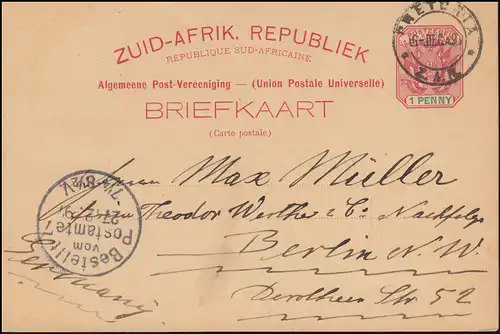 ZUID-AFRIK. REPUBLIEK
REPUBLIQUE SUD-AFRICAINE
Algemeene Post-Vereeniging — (Union Postale Universelle)
BRIEFKAART
(Carte postale)
PRETORIA
Z.A.R.
1 PENNY
Herrn Max Müller
Theodor Werthe & Co. Nachfolger
Berlin N. W.
Dorotheen Str. 52
Germany
Bestellt
vom
Postamte 7